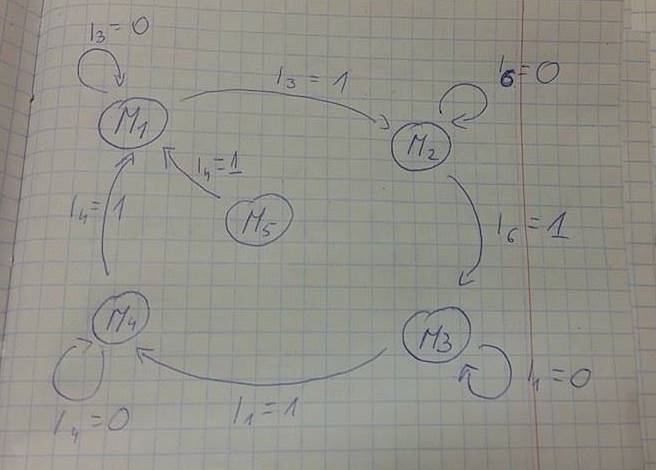 I3 = 0
I3 = 1
I6 = 0
M1
M2
I4 = 1
I4 = 1
M5
I6 = 1
M4
M3
I1 = 0
I4 = 0
I1 = 1